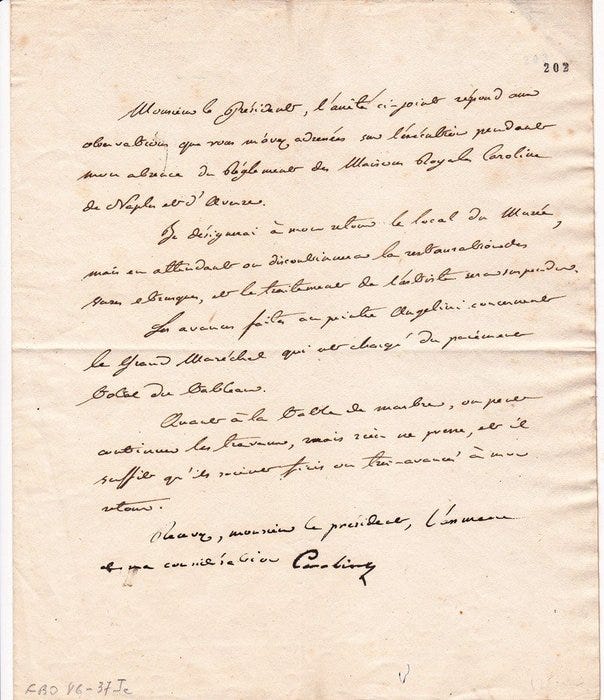 202
Monsieur le Président, l'arrêté ci-joint répond aux
observations que vous m'avez adressées sur l'exécution pendant
mon absence du Règlement des Maisons Royales Caroline
de Naples et d'Averse.
Je désignerai à mon retour le local du Musée,
mais en attendant on discontinuera la restauration des
vases etrusques, et le traitement de l'artiste sera suspendu.
Les avances faites au peintre Angelini concernent
le Grand Maréchal qui est chargé du paiement
total du Tableau.
Quant à la table de marbre, on peut
continuer les travaux, mais rien ne presse, et il
suffit qu'ils soient finis ou très-avancés à mon
retour.
Recevez, monsieur le président, l'assurance
de ma considération Caroline
FBO 86-37 Je